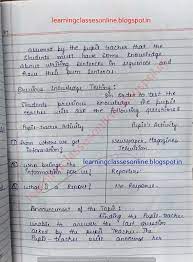 learningclassesonline.blogspot.in
assumed by the pupil teacher that the
students must have some knowledge
about writing sentences in sequence and
frame their own sentences.
Previous Knowledge Testing:
In order to test the
students previous knowledge the pupil
teacher will ask the following questions
Pupil-teacher Activity Pupil's Activity
From where we get information? Newspaper, Magazines, Television
learningclassesonline.blogspot.in
Who brings the information for us? Reporters
What is a Report? No Response.
Announcement of the Topic:
Finding the Pupil teacher
unable to answer the last question
asked by the Pupil teacher. The
Pupil-teacher will announce her